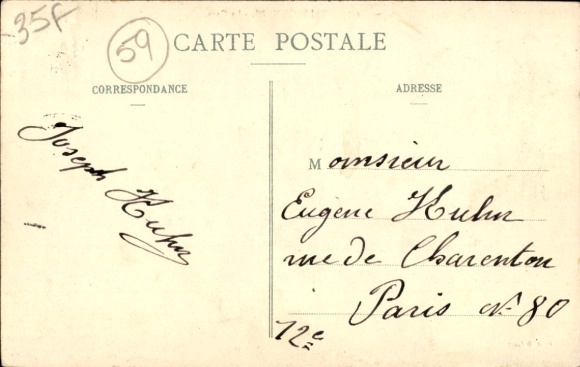 35F
59
CARTE POSTALE
CORRESPONDANCE
ADRESSE
Joseph Huhn
Monsieur
Eugène Huhn
rue de Charenton
Paris N° 80
12e